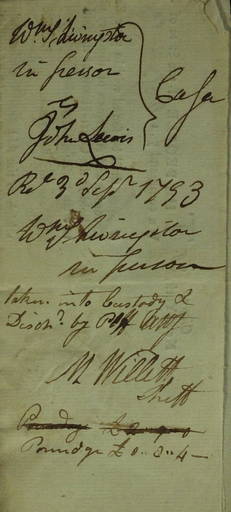 Wm Livingston
in person
vs
John Lewis
Casa
Recd 3d Septr 1793
Wm Livingston
in person
taken into Custody &
Dischd. by Plff
M Willett
Sheff
Poundage £
Poundge £0..3..4—